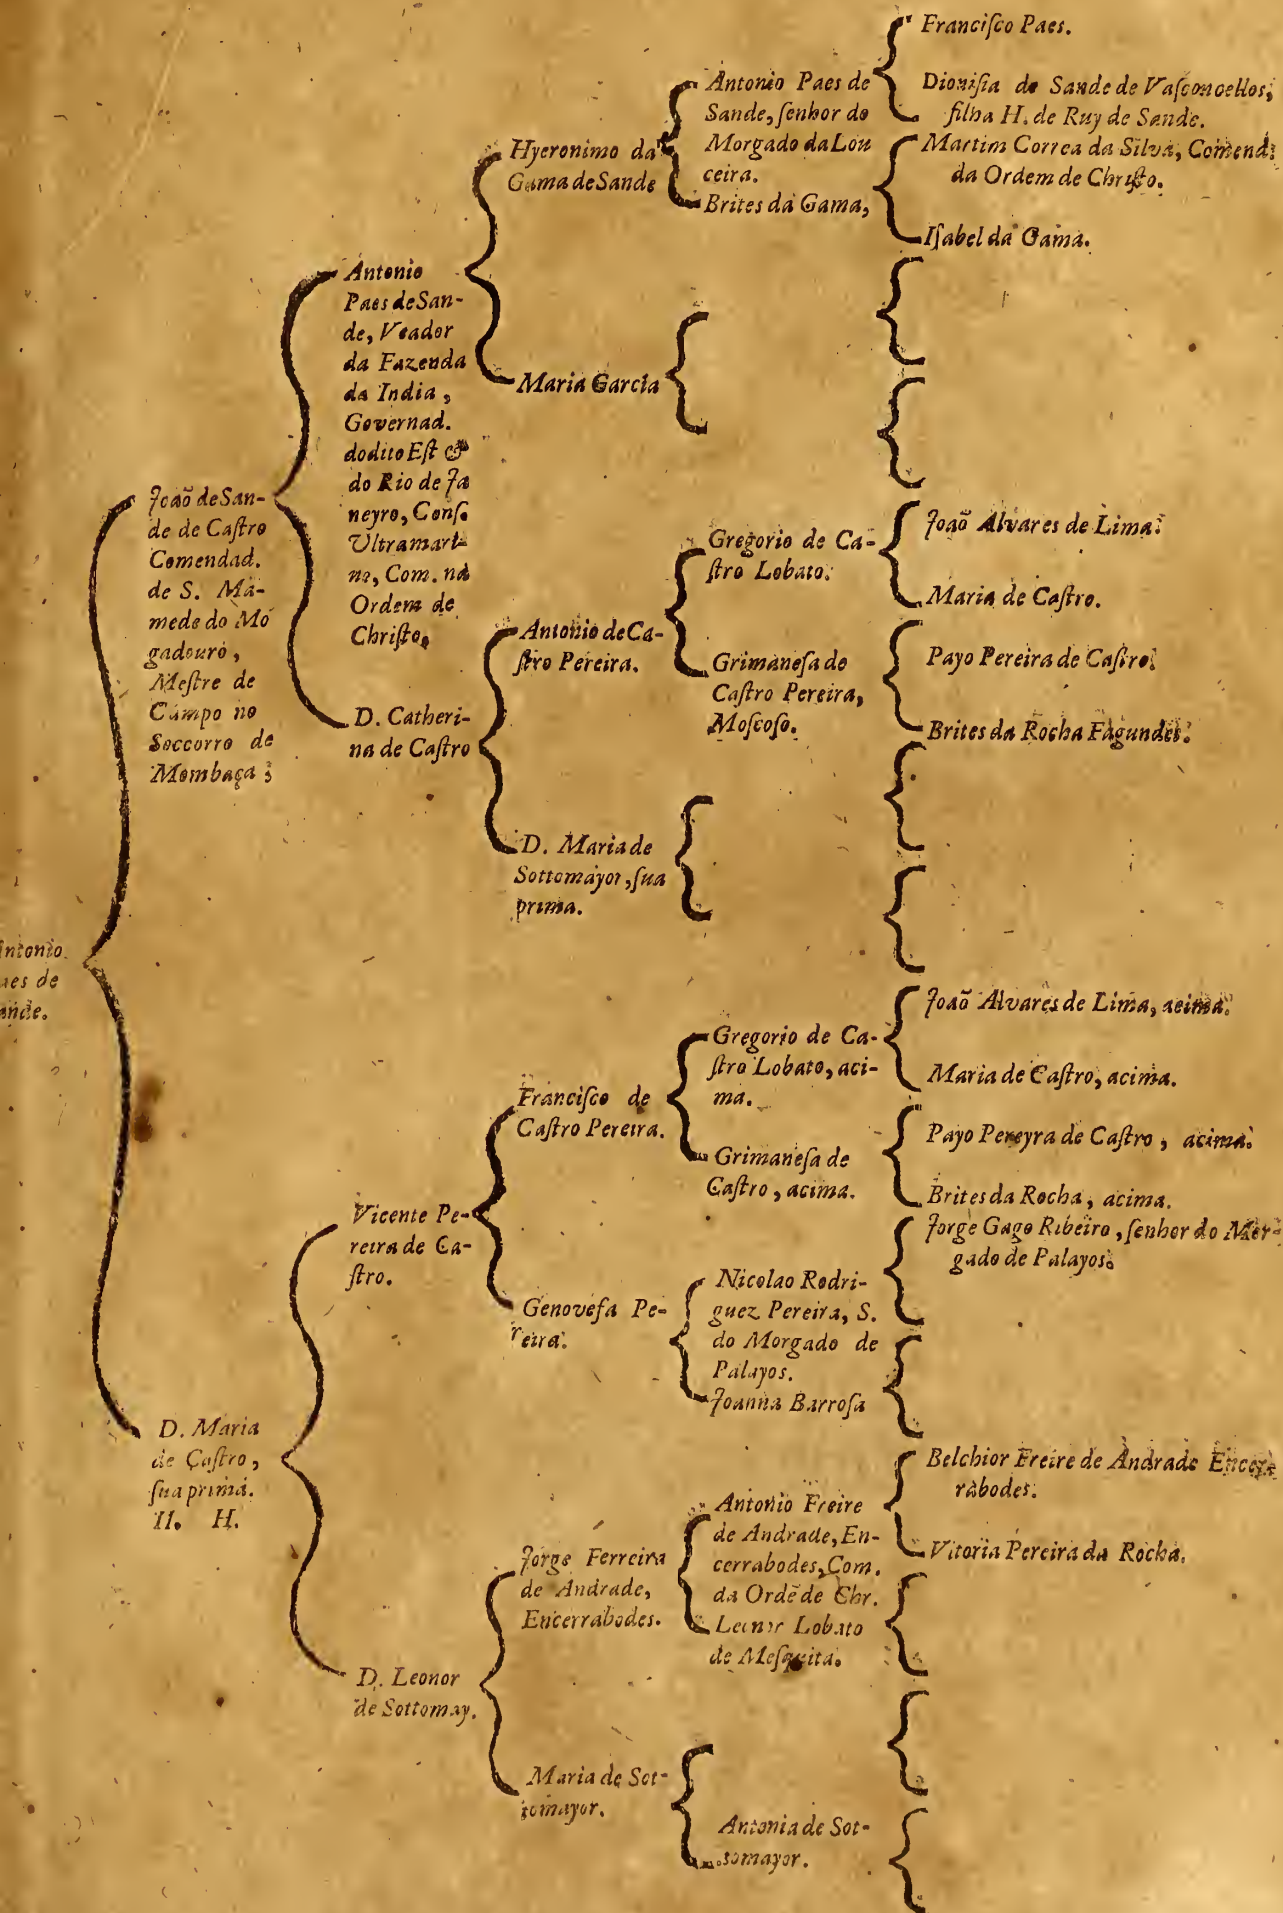 Antonio
Paes de
Sande.
Joaõ de San-
de de Caſtro
Comendad.
de S. Ma-
mede do Mo
gadouro,
Meſtre de
Campo no
Soccorro de
Mombaça;
D. Maria
de Caſtro,
ſua prima.
H. H.
Antonio
Paes de San-
de, Veador
da Fazenda
da India,
Governad.
do dito Eſt &
do Rio de Ja
neyro, Conſ.
Ultramari-
no, Com. na
Ordem de
Chriſto,
D. Catheri-
na de Caſtro
Vicente Pe-
reira de Ca-
ſtro.
D. Leonor
de Sottomay.
Hyeronimo da
Gama de Sande
Maria Garcia
Antonio de Ca-
ſtro Pereira.
D. Maria de
Sottomayor, ſua
prima.
Franciſco de
Caſtro Pereira.
Genoveſa Pe-
reira.
Jorge Ferreira
de Andrade,
Encerrabodes.
Maria de Sot-
tomayor.
Antonio Paes de
Sande, ſenhor do
Morgado da Lou
ceira.
Brites da Gama,
Gregorio de Ca-
ſtro Lobato.
Grimaneſa de
Caſtro Pereira,
Moſcoſo.
Gregorio de Ca-
ſtro Lobato, aci-
ma.
Grimaneſa de
Caſtro, acima.
Nicolao Rodri-
guez Pereira, S.
do Morgado de
Palayos.
Joanna Barroſa
Antonio Freire
de Andrade, En-
cerrabodes, Com.
da Ordẽ de Chr.
Leonor Lobato
de Meſquita.
Antonia de Sot-
tomayor.
Franciſco Paes.
Dioniſia de Sande de Vaſconcellos,
filha H. de Ruy de Sande.
Martim Correa da Silva, Comend.
da Ordem de Chriſto.
Iſabel da Gama.
Joaõ Alvares de Lima.
Maria de Caſtro.
Payo Pereira de Caſtro.
Brites da Rocha Fagundes.
Joaõ Alvares de Lima, acima.
Maria de Caſtro, acima.
Payo Pereyra de Caſtro, acima.
Brites da Rocha, acima.
Jorge Gago Ribeiro, ſenhor do Mor-
gado de Palayos.
Belchior Freire de Andrade Encer-
rabodes.
Vitoria Pereira da Rocha.